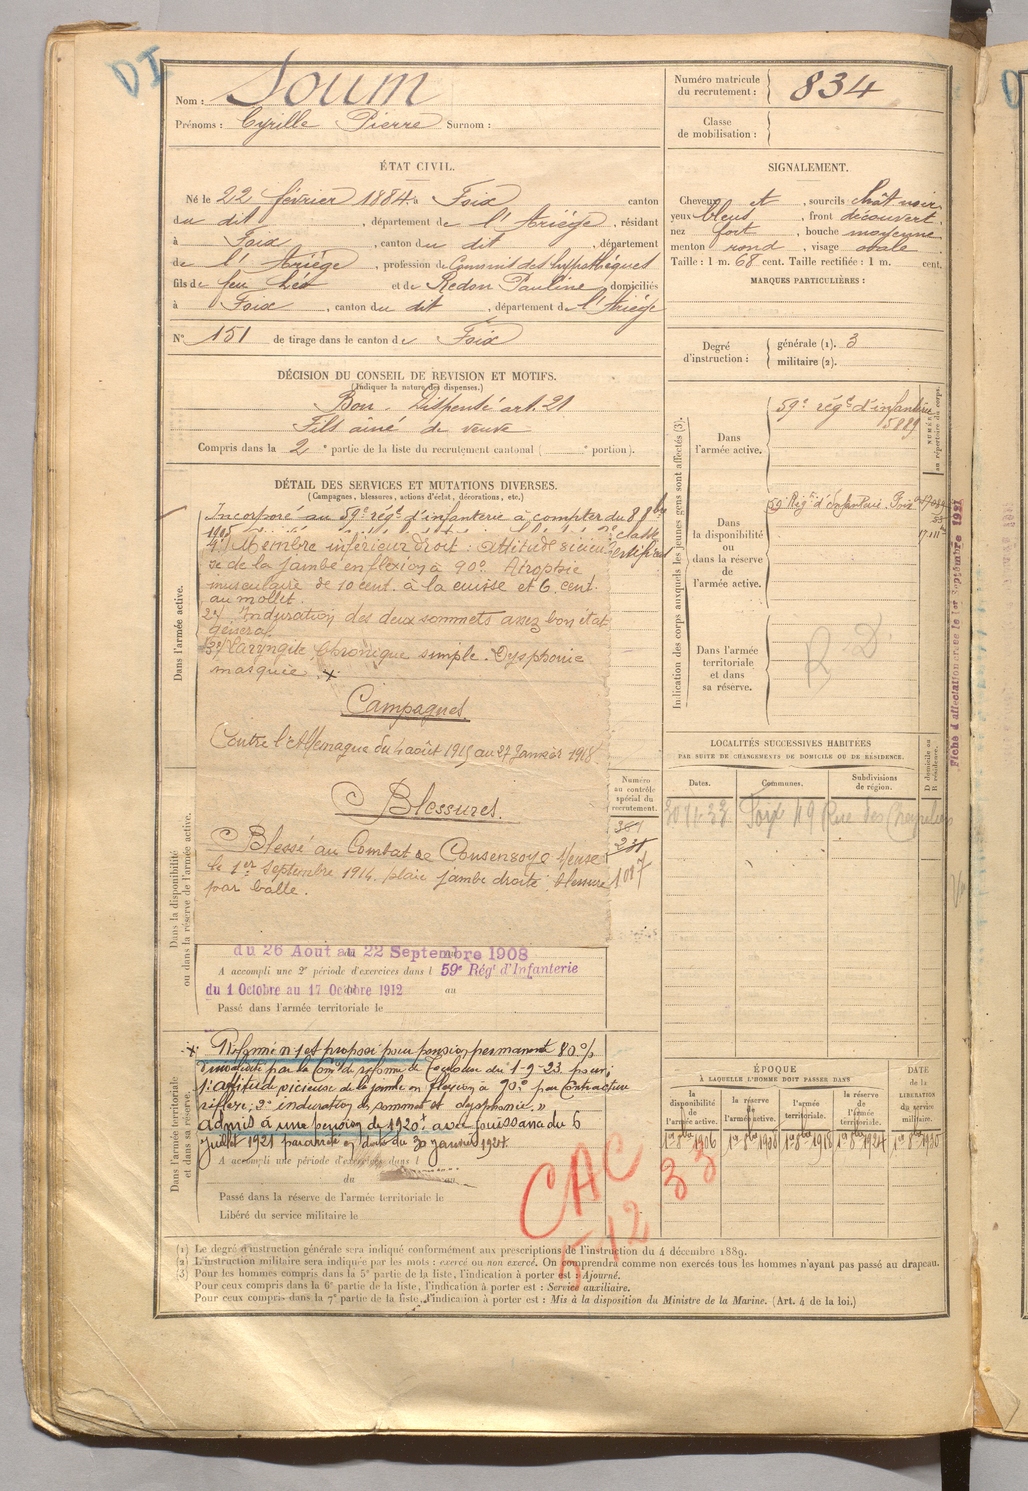 DI
Nom : Soum
Prénoms : Cyrille Pierre Surnom :
Numéro matricule du recrutement : 834
Classe de mobilisation :
ÉTAT CIVIL.
Né le 22 février 1884 à Foix canton
du dit, département de l'Ariège, résidant
à Foix, canton du dit, département
de l'Ariège, profession de Commis des hypothèques
fils de feu Léo et de Redon Pauline, domiciliés
à Foix, canton du dit, département de l'Ariège
N° 151 de tirage dans le canton de Foix
SIGNALEMENT.
Cheveux et, sourcils Chât noir
yeux bleus, front découvert
nez fort, bouche moyenne
menton rond, visage ovale
Taille : 1 m. 68 cent. Taille rectifiée : 1 m. cent.
MARQUES PARTICULIÈRES :
Degré d'instruction :
générale (1). 3
militaire (2).
DÉCISION DU CONSEIL DE REVISION ET MOTIFS.
(Indiquer la nature des dispenses.)
Bon. Dispensé art. 21
Fils aîné de veuve
Compris dans la 2e partie de la liste du recrutement cantonal ( e portion).
DÉTAIL DES SERVICES ET MUTATIONS DIVERSES.
(Campagnes, blessures, actions d'éclat, décorations, etc.)
Dans l'armée active.
Incorporé au 59e régt d'infanterie à compter du 8 8bre
1905
classe
1°/ Membre inférieur droit : attitude vicieu
se de la jambe en flexion à 90°. Atrophie
musculaire de 10 cent. à la cuisse et 6 cent.
au mollet.
2°/ Induration des deux sommets assez bon état
général
3°/ Laryngite chronique simple. Dysphonie
masquée. x
Campagnes.
Contre l'Allemagne du 4 août 1915 au 27 Janvier 1918
Blessures.
Blessé au Combat de Consenvoye Meuse
le 1er Septembre 1914, plaie jambe droite, blessure
par balle.
Dans la disponibilité ou dans la réserve de l'armée active.
Numéro au contrôle spécial du recrutement.
1087
du 26 Aout au 22 Septembre 1908
A accompli une 2e période d'exercices dans l 59e Régt d'Infanterie
du 1 Octobre au 17 Octobre 1912 au
Passé dans l'armée territoriale le
Dans l'armée territoriale et dans sa réserve.
x Réformé n° 1 et proposé pour pension permanente 80%
d'invalidité par la Comon de réforme de Toulouse du 1-9-23 pour :
1° attitude vicieuse de la jambe en flexion à 90° par contracture
réflexe, 2° induration des sommets et dysphonie. »
admis à une pension de 1920f avec jouissance du 6
juillet 1921 par arrêté en date du 30 janvier 1924
A accompli une période d'exercices dans l
du au
Passé dans la réserve de l'armée territoriale le
Libéré du service militaire le
CAC
512
33
Indication des corps auxquels les jeunes gens sont affectés (3).
Dans l'armée active.
59e régt d'infanterie
5889
NUMÉROS au répertoire du corps.
Dans la disponibilité ou dans la réserve de l'armée active.
59 Régt d'Infanterie Foix
Dans l'armée territoriale et dans sa réserve.
RD
Fiche d'affectation créée le 1er Septembre 1921
LOCALITÉS SUCCESSIVES HABITÉES
PAR SUITE DE CHANGEMENTS DE DOMICILE OU DE RÉSIDENCE.
Dates.
Communes.
Subdivisions de région.
D domicile ou R résidence.
Foix 49 Rue des Chapeliers
ÉPOQUE
À LAQUELLE L'HOMME DOIT PASSER DANS
la disponibilité de l'armée active.
la réserve de l'armée active.
l'armée territoriale.
la réserve de l'armée territoriale.
DATE de la LIBÉRATION du service militaire.
1er 8bre 1906
1er 8bre 1908
1er 8bre 1918
1er 8bre 1924
(1) Le degré d'instruction générale sera indiqué conformément aux prescriptions de l'instruction du 4 décembre 1889.
(2) L'instruction militaire sera indiquée par les mots : exercé ou non exercé. On comprendra comme non exercés tous les hommes n'ayant pas passé au drapeau.
(3) Pour les hommes compris dans la 5e partie de la liste, l'indication à porter est : Ajourné.
Pour ceux compris dans la 6e partie de la liste, l'indication à porter est : Service auxiliaire.
Pour ceux compris dans la 7e partie de la liste, l'indication à porter est : Mis à la disposition du Ministre de la Marine. (Art. 4 de la loi.)